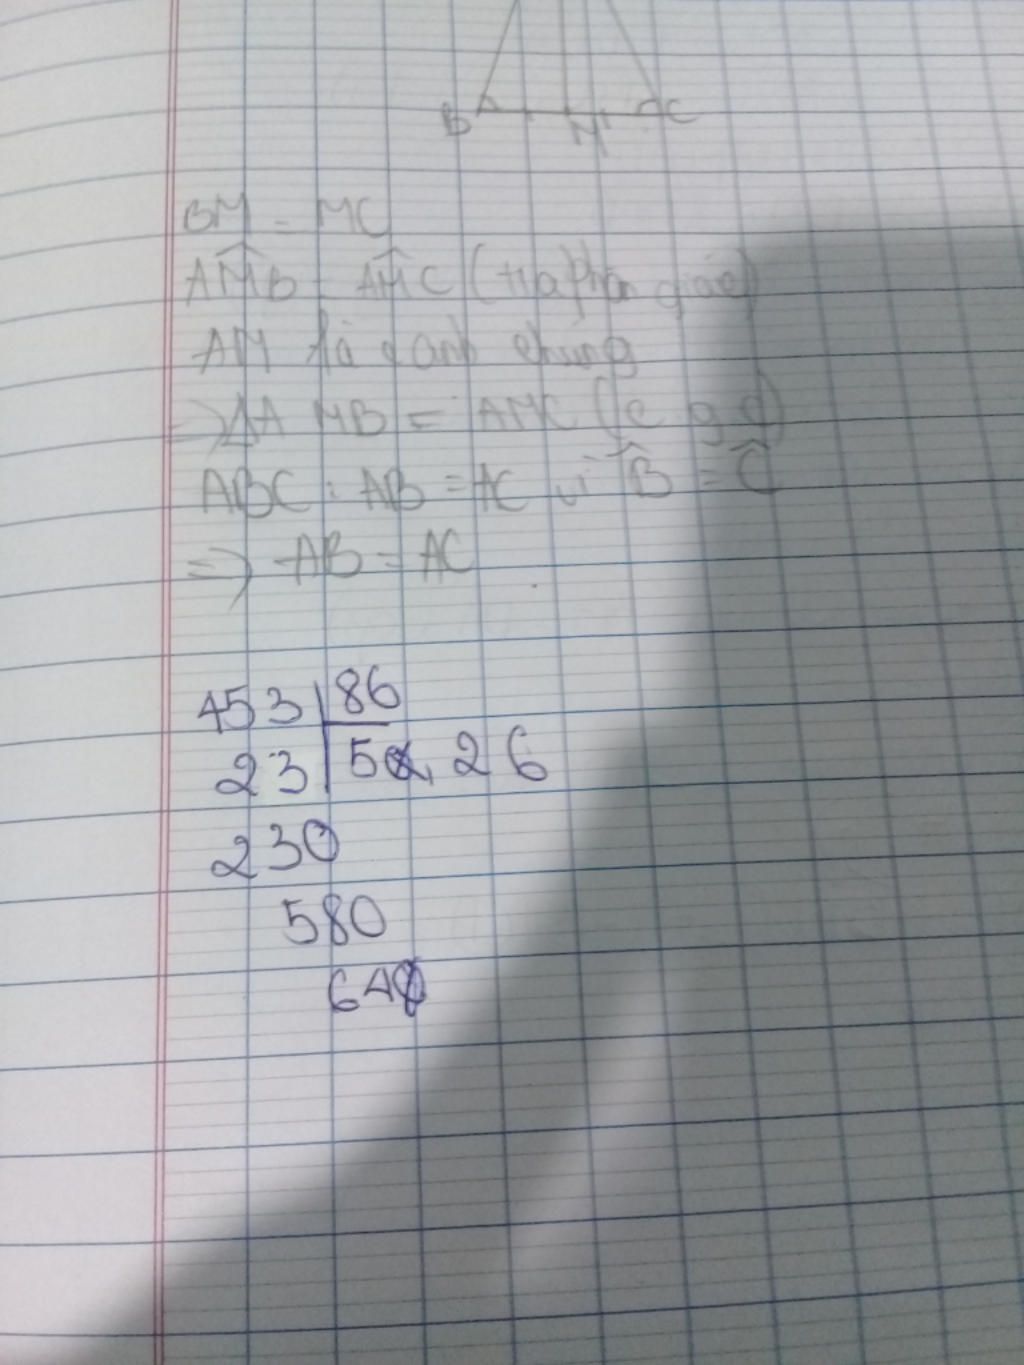 B M C
BM = MC
AMB = AMC (tia phân giác)
AM là cạnh chung
=> ΔA MB = AMC (c g c)
ABC: AB = AC vì B̂ = Ĉ
=> AB = AC
453 86
23 5, 26
230
580
64